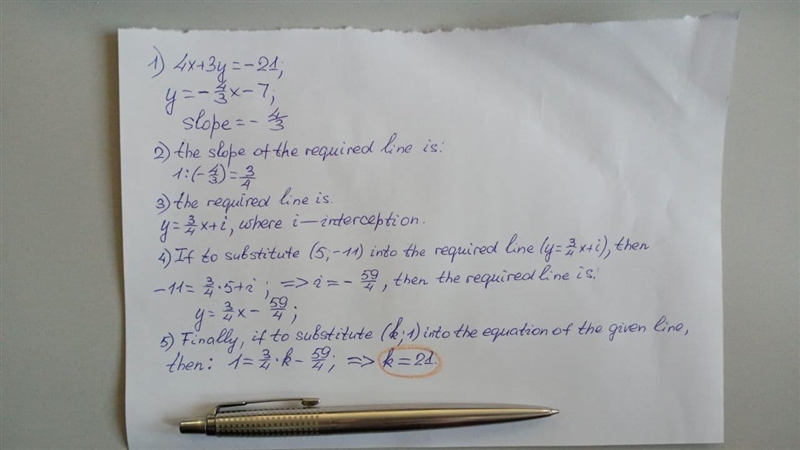 1) 4x+3y=-21;
y=-4/3x-7;
slope=-4/3
2) the slope of the required line is:
1:(-4/3)=3/4
3) the required line is.
y=3/4x+i, where i—interception.
4) If to substitute (5,-11) into the required line (y=3/4x+i), then
-11=3/4·5+i; => i=-59/4, then the required line is:
y=3/4x-59/4;
5) Finally, if to substitute (k;1) into the equation of the given line,
then: 1=3/4·k-59/4; => k=21.